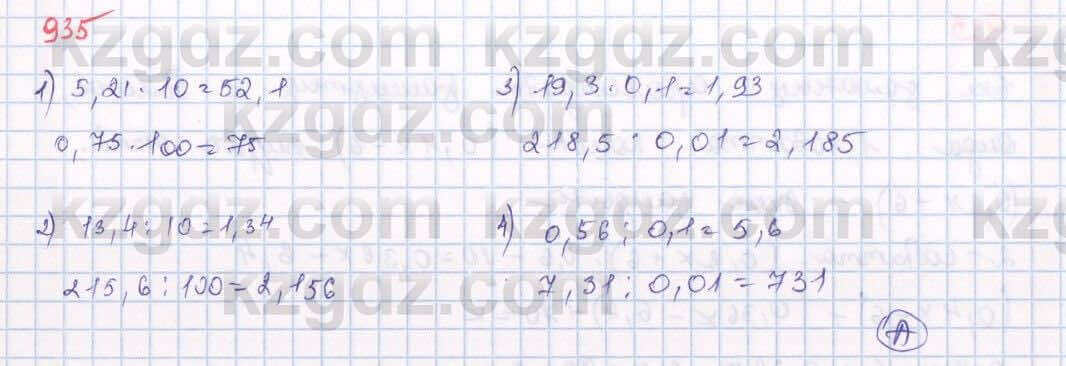 935
1) 5,21 · 10 = 52,1
0,75 · 100 = 75
2) 13,4 : 10 = 1,34
215,6 : 100 = 2,156
3) 19,3 · 0,1 = 1,93
218,5 : 0,01 = 2,185
4) 0,56 : 0,1 = 5,6
7,31 : 0,01 = 731
A
kzgdz.com kzgdz.com kz
kzgdz.com kzgdz.com kz
kzgdz.com kzgdz.com kz